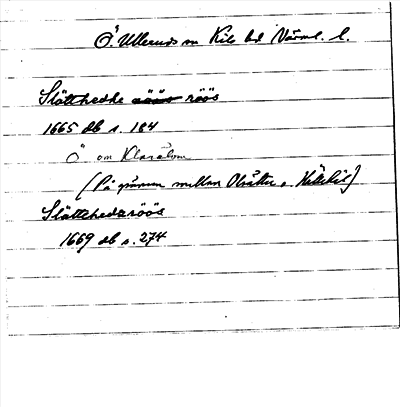 Ö. Ulleruds sn Kils hd Värml. l.
Slätthedke röös
1665 db s. 184
Ö om Klarälven
(På gränsen mellan Olsäter o. Hällekil)
Slätthedzröös
1669 db s. 274